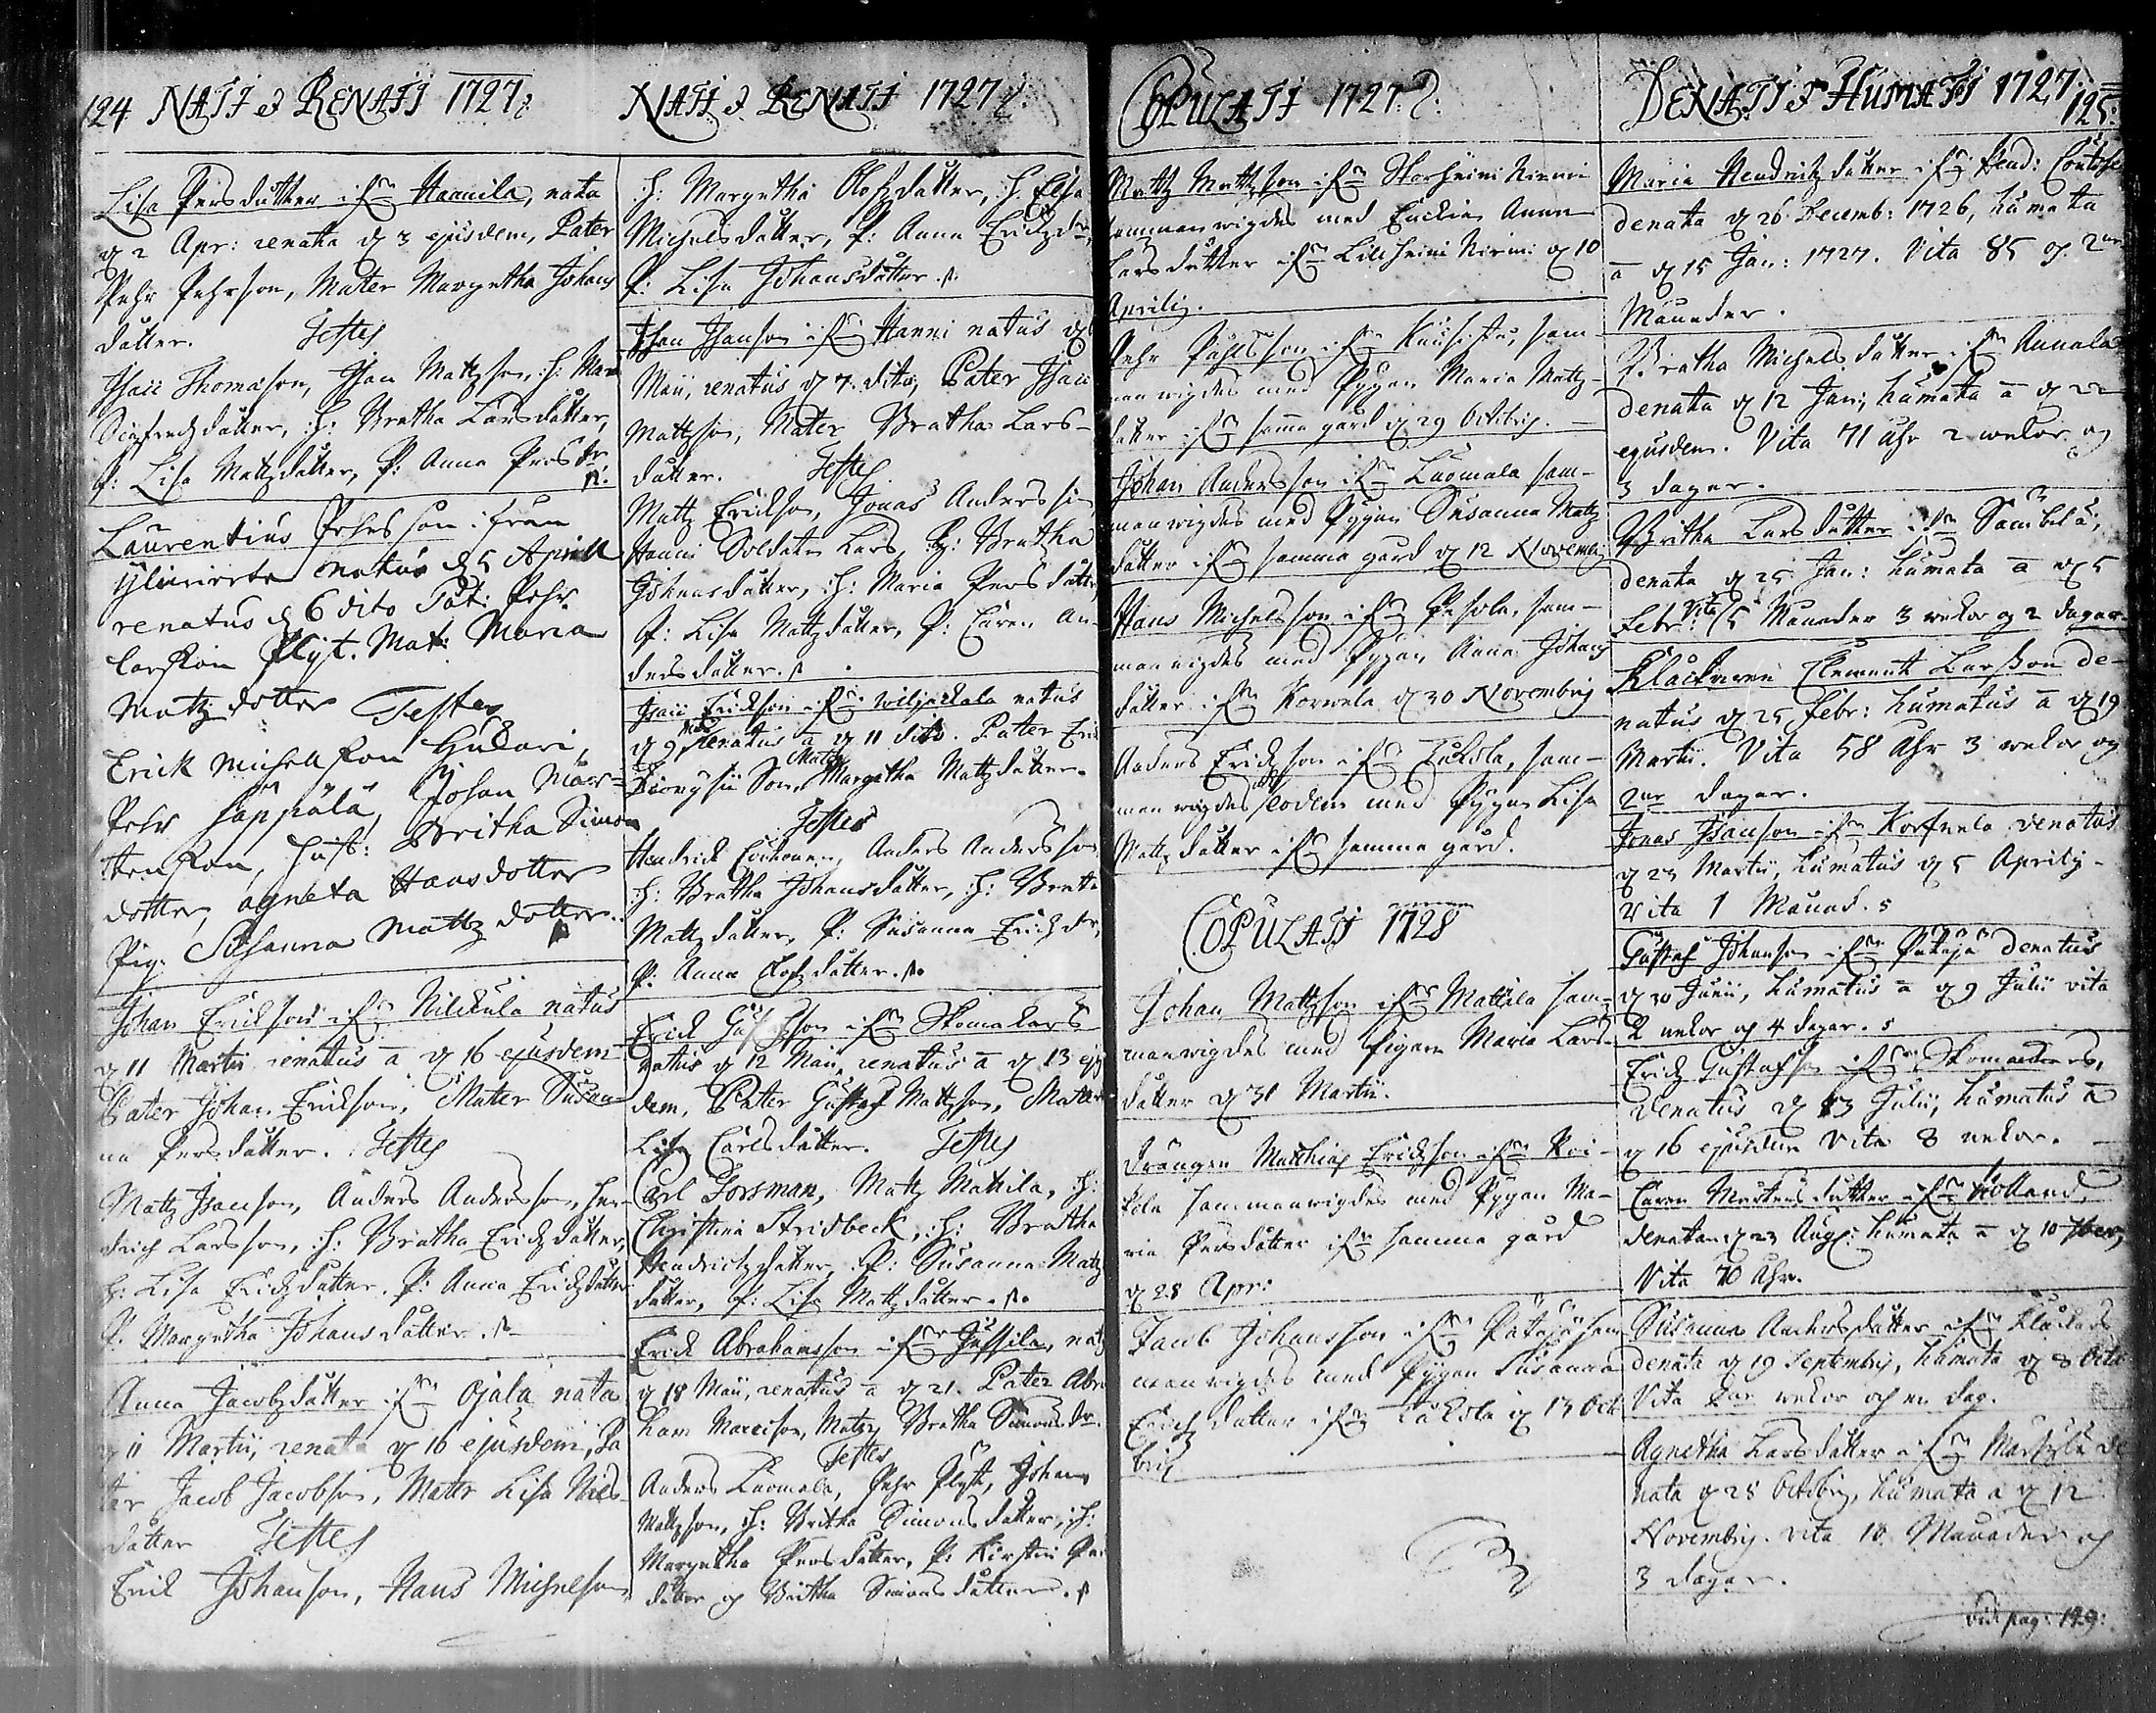 124 NATI & RENATI 1727
Lisa Persdatter ifrn Hannila, nata
d 2 Apr: renata d 3 ejusdem, Pater
Pehr Pehrson, Mater Margetha Johans
datter. Testes
Isaii Thomason, Isac Mattzson, h: Mar
Sigfredzdatter, h: Bretha Larsdatter,
P: Lisa Mattzdatter, P: Anna Persdr
Laurentius Pehrsson ifrån
natus d 5 Aprill
renatus d 6 dito Pat: Pehr
Larsson Plyt. Mat: Maria
Mattz dotter Testes
Erick Michellsson Hudari,
Pehr Säppälä, Johan Mår-
tensson, Hust: Britha Simons
dotter, Agneta Hansdotter
Pig. Susanna Mattz dotter.
Johan Erickson ifrn Nilckula natus
d 11 Martii renatus a d 16 ejusdem
Pater Johan Erickson, Mater Susan
na Persdatter. Testes
Mattz Isacson, Anders Andersson, Hen
drich Larsson, h: Bretha Erichzdatter,
h: Lisa Erichzdatter, P: Anna Erichzdatter
P. Margetha Johansdatter.
Anna Jacobzdatter ifrn Ojala nata
d 11 Martii, renata d 16 ejusdem, Pa
ter Jacob Jacobson, Mater Lisa Niels
datter Testes
Erick Johanson, Hans Michelson,
NATI & RENATI 1727
h: Margetha Olofzdatter, h. Elsa
Michelsdatter, P: Anna Erichzdr,
P: Lisa Johansdatter.
Isac Isacson ifrn Hanni natus d
Maii, renatus d 7. dito, Pater Isac
Mattzson, Mater Bretha Lars-
datter. Testes
Mattz Erickson, Jonas Andersson
Hanni Soldaten Lars, h: Bretha
Johansdatter, h: Maria Persdatter,
P: Lisa Mattzdatter, P: Caren An-
dersdatter.
Isaii Erickson ifrn Wiljackala natus
d 9 Maii renatus a d 11 dito. Pater Erick
Dionysii Son, Mater Margetha Mattzdatter.
Testes
Hendrick Coukonen, Anders Andersson
h: Bretha Johansdatter, h: Bretha
Mattzdatter, P: Susanna Erichzdr,
P: Anna Olofzdatter.
Erick Gustafson ifrn Skomakars
natus d 12 Maii, renatus a d 13 ejus
dem, Pater Gustaf Mattzson, Mater
Lisa Carlsdatter. Testes
Carl Forsman, Mattz Mattila, h:
Christina Stridbeck, h: Bretha
Hendrichzdatter, P: Susanna Mattz
datter, P: Lisa Mattzdatter.
Erick Abrahamsson ifrn Jussila, nat9
d 18 Maii, renatus a d 21. Pater Abra
ham Marcison, Mater Bretha Simonsdr.
Testes
Anders Luomala, Pehr Plyt, Johan
Mattzson, h: Britha Simonsdatter, h:
Margetha Persdatter, P: Kirstin Pers
datter og Britha Simonsdatter.
COPULATI 1727.
Mattz Mattzson ifrn Storheini Niemi
sammanwigdes med Enckian Anna
Larsdatter ifrn Lillheini Niemi d 10
Aprilis.
Pehr Påhlsson ifrn Kuusisto, sam-
manwigdes med Pygan Maria Mattz-
datter ifrn samma gård d 29 Octobris.
Johan Andersson ifrn Luomala sam-
manwigdes med Pygan Susanna Mattz
datter ifrn samma gård d 12 Novembris
Hans Michelsson ifrn Pesola, sam-
manwigdes med Pygan Anna Johans
datter ifrn Korwela d 30 Novembris
Anders Erichson ifrn Tuksla, sam-
manwigdes die eodem med Pygan Lisa
Mattzdatter ifrn samma gård.
COPULATI 1728
Johan Mattzson ifrn Mattila sam-
manwigdes med Pigan Maria Lars-
datter d 31 Martii.
Drängen Matthias Erichson ifrn Koi-
kola sammanwigdes med Pygan Ma-
ria Persdatter ifrn samma gård
d 28 Apr:
Jacob Johansson ifrn Pätäjä sam
manwigdes med Pygan Susanna
Erichzdatter ifrn Tuksla d 13 Octo
bris
DENATI & HUMATI 1727
125:
Maria Hendrichzdatter ifrn
denata d 26 Decemb: 1726, humata
a d 15 Jan: 1727. Vita 85 og 2ne
Månader.
Bretha Michelsdatter ifrn Annala
denata d 12 Jan; humata a d 22
ejusdem. Vita 71 Åhr 2 wekor og
3 dagar.
Britha Larsdatter ifrn Sambela,
denata d 25 Jan: humata a d 5
Febr: Vita 5 Månader 3 wekor og 2 dagar
Klåckaren Clementt Larsson de-
natus d 25 Febr: humatus a d 19
Martii. Vita 58 Åhr 3 wekor og
2ne dagar.
Jonas Isacson ifrn Korfwela denatus
d 23 Martii, humatus d 5 Aprilis
Vita 1 Månad.
Gustaf Johanson ifrn Petäjä denatus
d 30 Junii, humatus a d 9 Julii vita
2 wekor og 4 dagar.
Erick Gustafson ifrn Skomackers,
Denatus d 13 Julii, humatus a
d 16 ejusdem Vita 8 wekor.
Caren Mårtensdatter ifrn Kolland,
denata d 23 Aug: humata a d 10 7ber,
Vita 70 Åhr.
Susanna Andersdatter ifrn Klåckars
denata d 19 Septembris, humata d 8 Octo
Vita 2ne wekor og en dag.
Agnetha Larsdatter ifrn Markyla de
nata d 28 Octobris, humata a d 12
Novembris. vita 10 Månader og
3 dagar.
vide pag: 129: